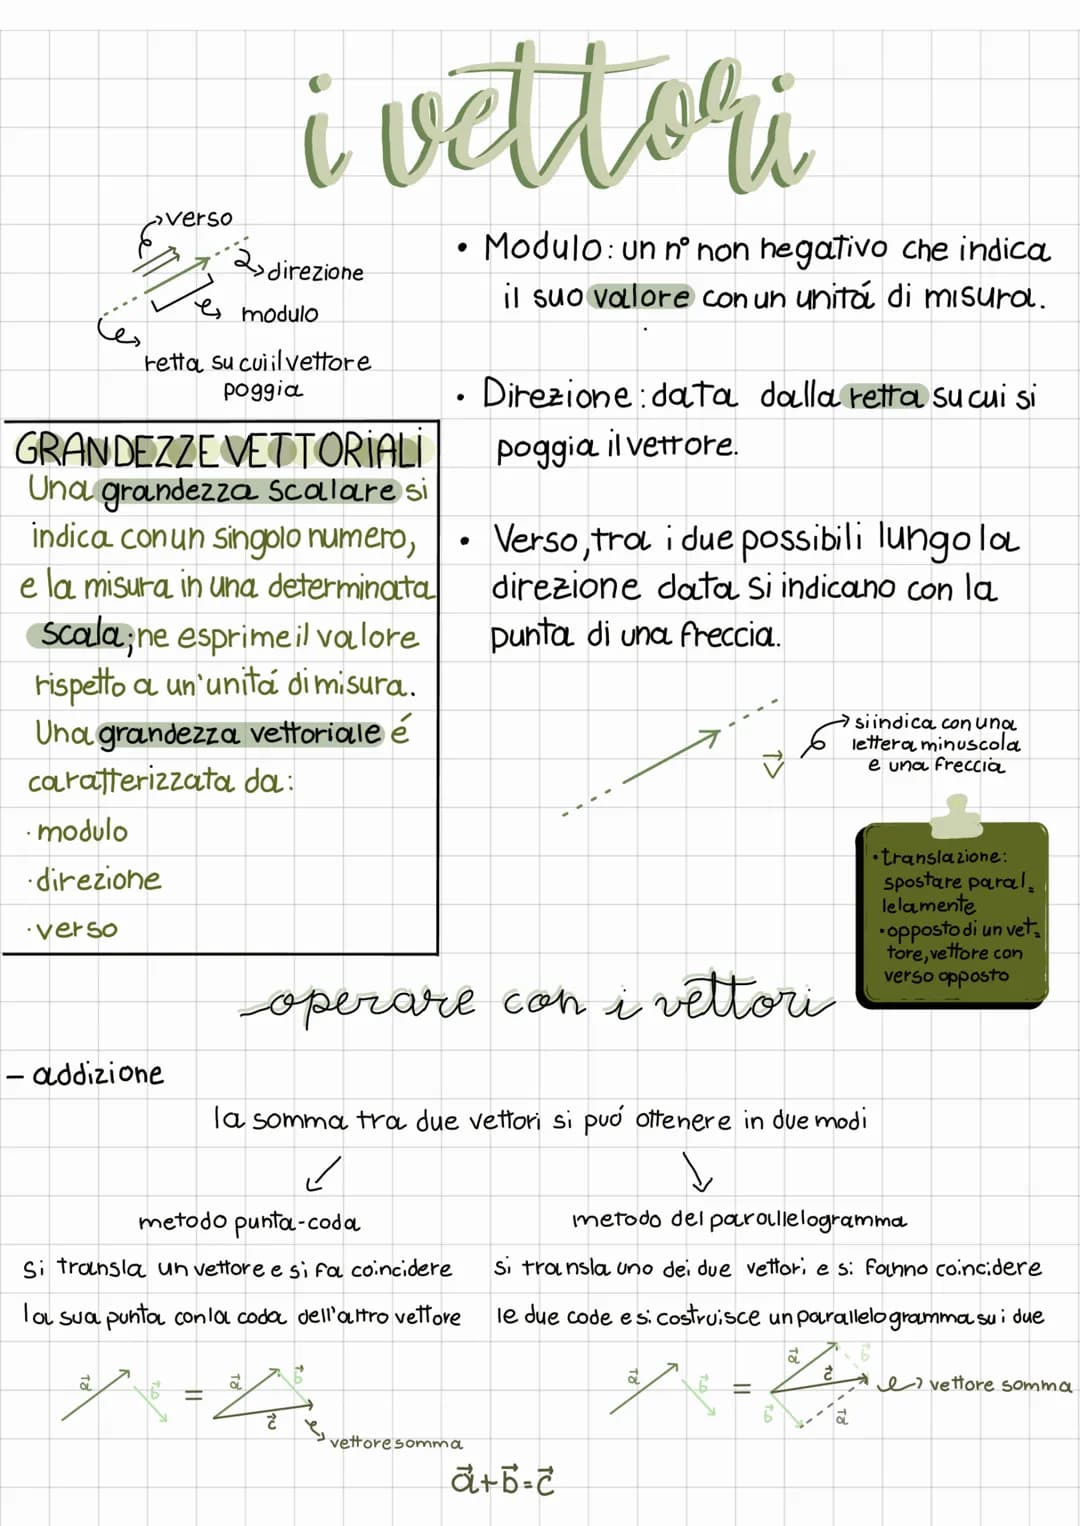 i vettori
verso
direzione
modulo
retta su cui il vettore
poggia
• Modulo: un n° non negativo che indica
il suo valore con un unitá di misura.
• Direzione: data dalla retta su cui si
poggia il vettore.
• Verso, tra i due possibili lungo la
direzione data si indicano con la
punta di una freccia.
GRANDEZZE VETTORIALI
Una grandezza scalare si
indica con un singolo numero,
e la misura in una determinata
scala; ne esprime il valore
rispetto a un'unitá di misura.
Una grandezza vettoriale é
caratterizzata da:
·modulo
·direzione
·verso
v⃗
si indica con una
lettera minuscola
e una freccia
•translazione:
spostare paral=
lelamente
•opposto di un vet=
tore, vettore con
verso opposto
operare con i vettori
- addizione
la somma tra due vettori si puó ottenere in due modi
metodo punta-coda
si transla un vettore e si fa coincidere
la sua punta con la coda dell'altro vettore
a⃗ b⃗ = a⃗ b⃗ c⃗
vettore somma
metodo del parallelogramma
si transla uno dei due vettori e si fanno coincidere
le due code e si costruisce un parallelogramma su i due
a⃗ b⃗ = a⃗ b⃗ c⃗ b⃗ a⃗
vettore somma
a⃗+b⃗=c⃗